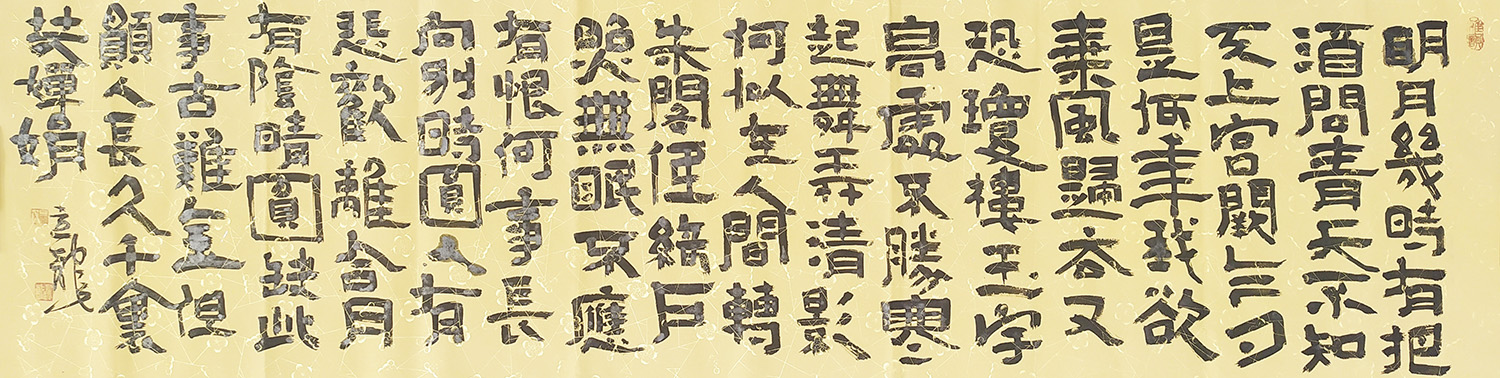 明月幾時有把
酒問青天不知
天上宮闕今夕
是何年我欲
乘風歸去又
恐瓊樓玉宇
高處不勝寒
起舞弄清影
何似在人間轉
朱閣低綺戶
照無眠不應
有恨何事長
向別時圓人有
悲歡離合月
有陰晴圓缺此
事古難全但
願人長久千裏
共嬋娟